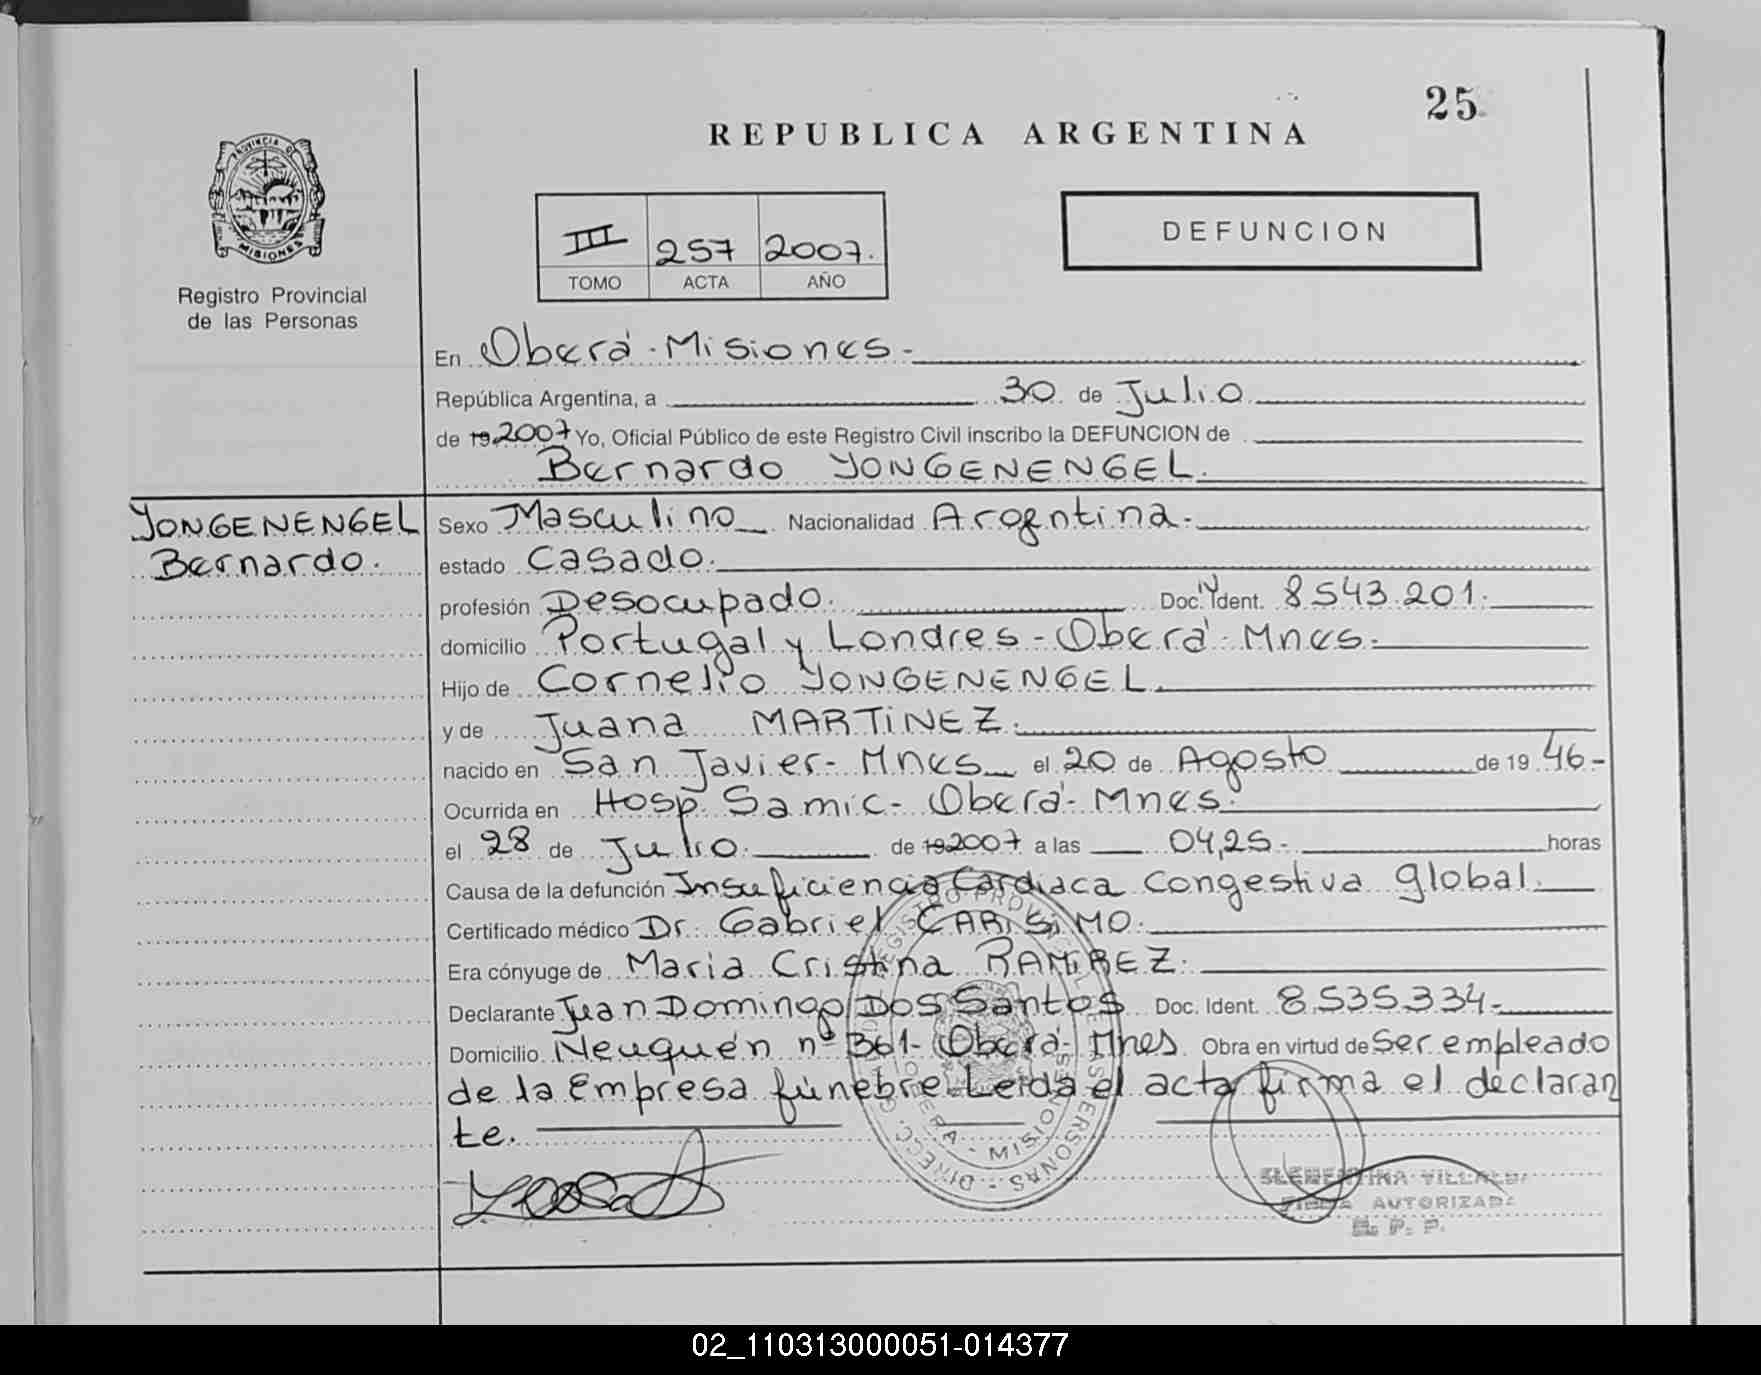 25
REPUBLICA ARGENTINA
PROVINCIA DE
MISIONES
Registro Provincial
de las Personas
III 257 2007.
TOMO ACTA AÑO
DEFUNCION
En Oberá - Misiones -
República Argentina, a 30 de Julio
de 19 2007 Yo, Oficial Público de este Registro Civil inscribo la DEFUNCION de
Bernardo YONGENENGEL.
YONGENENGEL
Bernardo.
Sexo Masculino Nacionalidad Argentina.
estado Casado.
profesión Desocupado. Doc. Ident. 8543.201.
domicilio Portugal y Londres - Oberá - Mnes.
Hijo de Cornelio YONGENENGEL.
y de Juana MARTINEZ.
nacido en San Javier - Mnes el 20 de Agosto de 19 46-
Ocurrida en Hosp. Samic - Oberá - Mnes.
el 28 de Julio. de 19 2007 a las 04,25. horas
Causa de la defunción Insuficiencia Cardiaca Congestiva global.
Certificado médico Dr. Gabriel CARISIMO.
Era cónyuge de Maria Cristina RAMIREZ.
Declarante Juan Domingo DOS Santos Doc. Ident. 8.535.334.
Domicilio. Neuquén nº 361 - Oberá - Mnes Obra en virtud de ser empleado
de la Empresa fúnebre Leida el acta firma el declaran
te.
MISIONES
AUTORIZADA
R. P. P.
02_110313000051-014377